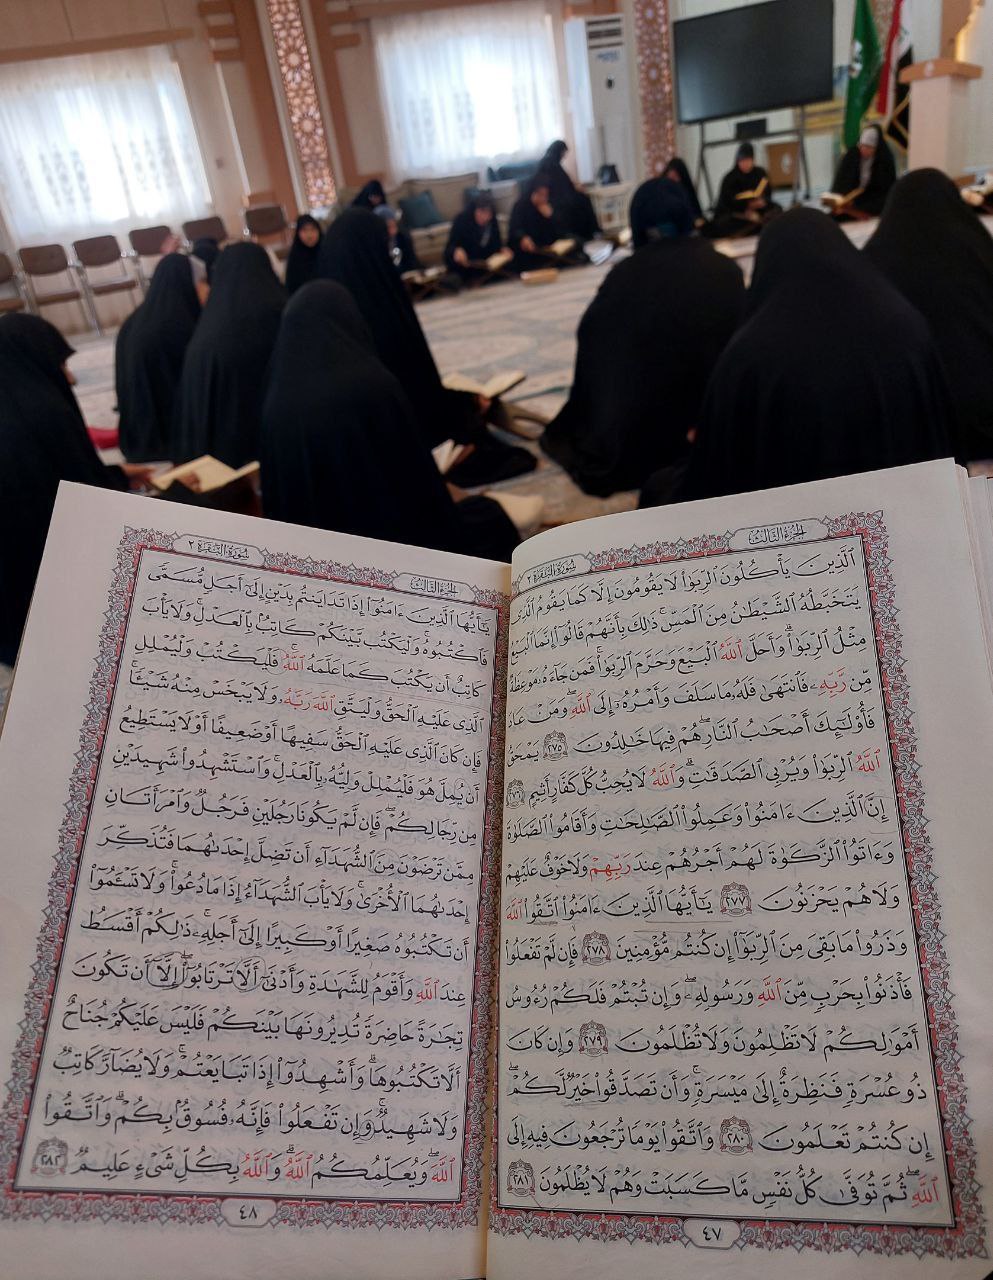 الجزء الثالث
سورة البقرة ٢
ٱلَّذِينَ يَأْكُلُونَ ٱلرِّبَوٰا۟ لَا يَقُومُونَ إِلَّا كَمَا يَقُومُ ٱلَّذِى
يَتَخَبَّطُهُ ٱلشَّيْطَٰنُ مِنَ ٱلْمَسِّ ۚ ذَٰلِكَ بِأَنَّهُمْ قَالُوٓا۟ إِنَّمَا ٱلْبَيْعُ
مِثْلُ ٱلرِّبَوٰا۟ ۗ وَأَحَلَّ ٱللَّهُ ٱلْبَيْعَ وَحَرَّمَ ٱلرِّبَوٰا۟ ۚ فَمَن جَآءَهُۥ مَوْعِظَةٌ
مِّن رَّبِّهِۦ فَٱنتَهَىٰ فَلَهُۥ مَا سَلَفَ وَأَمْرُهُۥٓ إِلَى ٱللَّهِ ۖ وَمَنْ عَادَ
فَأُو۟لَٰٓئِكَ أَصْحَٰبُ ٱلنَّارِ ۖ هُمْ فِيهَا خَٰلِدُونَ ٢٧٥ يَمْحَقُ
ٱللَّهُ ٱلرِّبَوٰا۟ وَيُرْبِى ٱلصَّدَقَٰتِ ۗ وَٱللَّهُ لَا يُحِبُّ كُلَّ كَفَّارٍ أَثِيمٍ ٢٧٦
إِنَّ ٱلَّذِينَ ءَامَنُوا۟ وَعَمِلُوا۟ ٱلصَّٰلِحَٰتِ وَأَقَامُوا۟ ٱلصَّلَوٰةَ
وَءَاتَوُا۟ ٱلزَّكَوٰةَ لَهُمْ أَجْرُهُمْ عِندَ رَبِّهِمْ وَلَا خَوْفٌ عَلَيْهِمْ
وَلَا هُمْ يَحْزَنُونَ ٢٧٧ يَٰٓأَيُّهَا ٱلَّذِينَ ءَامَنُوا۟ ٱتَّقُوا۟ ٱللَّهَ
وَذَرُوا۟ مَا بَقِىَ مِنَ ٱلرِّبَوٰٓا۟ إِن كُنتُم مُّؤْمِنِينَ ٢٧٨ فَإِن لَّمْ تَفْعَلُوا۟
فَأْذَنُوا۟ بِحَرْبٍ مِّنَ ٱللَّهِ وَرَسُولِهِۦ ۖ وَإِن تُبْتُمْ فَلَكُمْ رُءُوسُ
أَمْوَٰلِكُمْ لَا تَظْلِمُونَ وَلَا تُظْلَمُونَ ٢٧٩ وَإِن كَانَ
ذُو عُسْرَةٍ فَنَظِرَةٌ إِلَىٰ مَيْسَرَةٍ ۚ وَأَن تَصَدَّقُوا۟ خَيْرٌ لَّكُمْ ۖ
إِن كُنتُمْ تَعْلَمُونَ ٢٨٠ وَٱتَّقُوا۟ يَوْمًا تُرْجَعُونَ فِيهِ إِلَى
ٱللَّهِ ۖ ثُمَّ تُوَفَّىٰ كُلُّ نَفْسٍ مَّا كَسَبَتْ وَهُمْ لَا يُظْلَمُونَ ٢٨١
٤٧
الجزء الثالث
سورة البقرة ٢
يَٰٓأَيُّهَا ٱلَّذِينَ ءَامَنُوٓا۟ إِذَا تَدَايَنتُم بِدَيْنٍ إِلَىٰٓ أَجَلٍ مُّسَمًّى
فَٱكْتُبُوهُ ۚ وَلْيَكْتُب بَّيْنَكُمْ كَاتِبٌۢ بِٱلْعَدْلِ ۚ وَلَا يَأْبَ
كَاتِبٌ أَن يَكْتُبَ كَمَا عَلَّمَهُ ٱللَّهُ ۚ فَلْيَكْتُبْ وَلْيُمْلِلِ
ٱلَّذِى عَلَيْهِ ٱلْحَقُّ وَلْيَتَّقِ ٱللَّهَ رَبَّهُۥ وَلَا يَبْخَسْ مِنْهُ شَيْـًٔا ۚ
فَإِن كَانَ ٱلَّذِى عَلَيْهِ ٱلْحَقُّ سَفِيهًا أَوْ ضَعِيفًا أَوْ لَا يَسْتَطِيعُ
أَن يُمِلَّ هُوَ فَلْيُمْلِلْ وَلِيُّهُۥ بِٱلْعَدْلِ ۚ وَٱسْتَشْهِدُوا۟ شَهِيدَيْنِ
مِن رِّجَالِكُمْ ۖ فَإِن لَّمْ يَكُونَا رَجُلَيْنِ فَرَجُلٌ وَٱمْرَأَتَانِ
مِمَّن تَرْضَوْنَ مِنَ ٱلشُّهَدَآءِ أَن تَضِلَّ إِحْدَىٰهُمَا فَتُذَكِّرَ
إِحْدَىٰهُمَا ٱلْأُخْرَىٰ ۚ وَلَا يَأْبَ ٱلشُّهَدَآءُ إِذَا مَا دُعُوا۟ ۚ وَلَا تَسْـَٔمُوٓا۟
أَن تَكْتُبُوهُ صَغِيرًا أَوْ كَبِيرًا إِلَىٰٓ أَجَلِهِۦ ۚ ذَٰلِكُمْ أَقْسَطُ
عِندَ ٱللَّهِ وَأَقْوَمُ لِلشَّهَٰدَةِ وَأَدْنَىٰٓ أَلَّا تَرْتَابُوٓا۟ ۖ إِلَّآ أَن تَكُونَ
تِجَٰرَةً حَاضِرَةً تُدِيرُونَهَا بَيْنَكُمْ فَلَيْسَ عَلَيْكُمْ جُنَاحٌ
أَلَّا تَكْتُبُوهَا ۗ وَأَشْهِدُوٓا۟ إِذَا تَبَايَعْتُمْ ۚ وَلَا يُضَآرَّ كَاتِبٌ
وَلَا شَهِيدٌ ۚ وَإِن تَفْعَلُوا۟ فَإِنَّهُۥ فُسُوقٌۢ بِكُمْ ۗ وَٱتَّقُوا۟
ٱللَّهَ ۖ وَيُعَلِّمُكُمُ ٱللَّهُ ۗ وَٱللَّهُ بِكُلِّ شَىْءٍ عَلِيمٌ ٢٨٢
٤٨